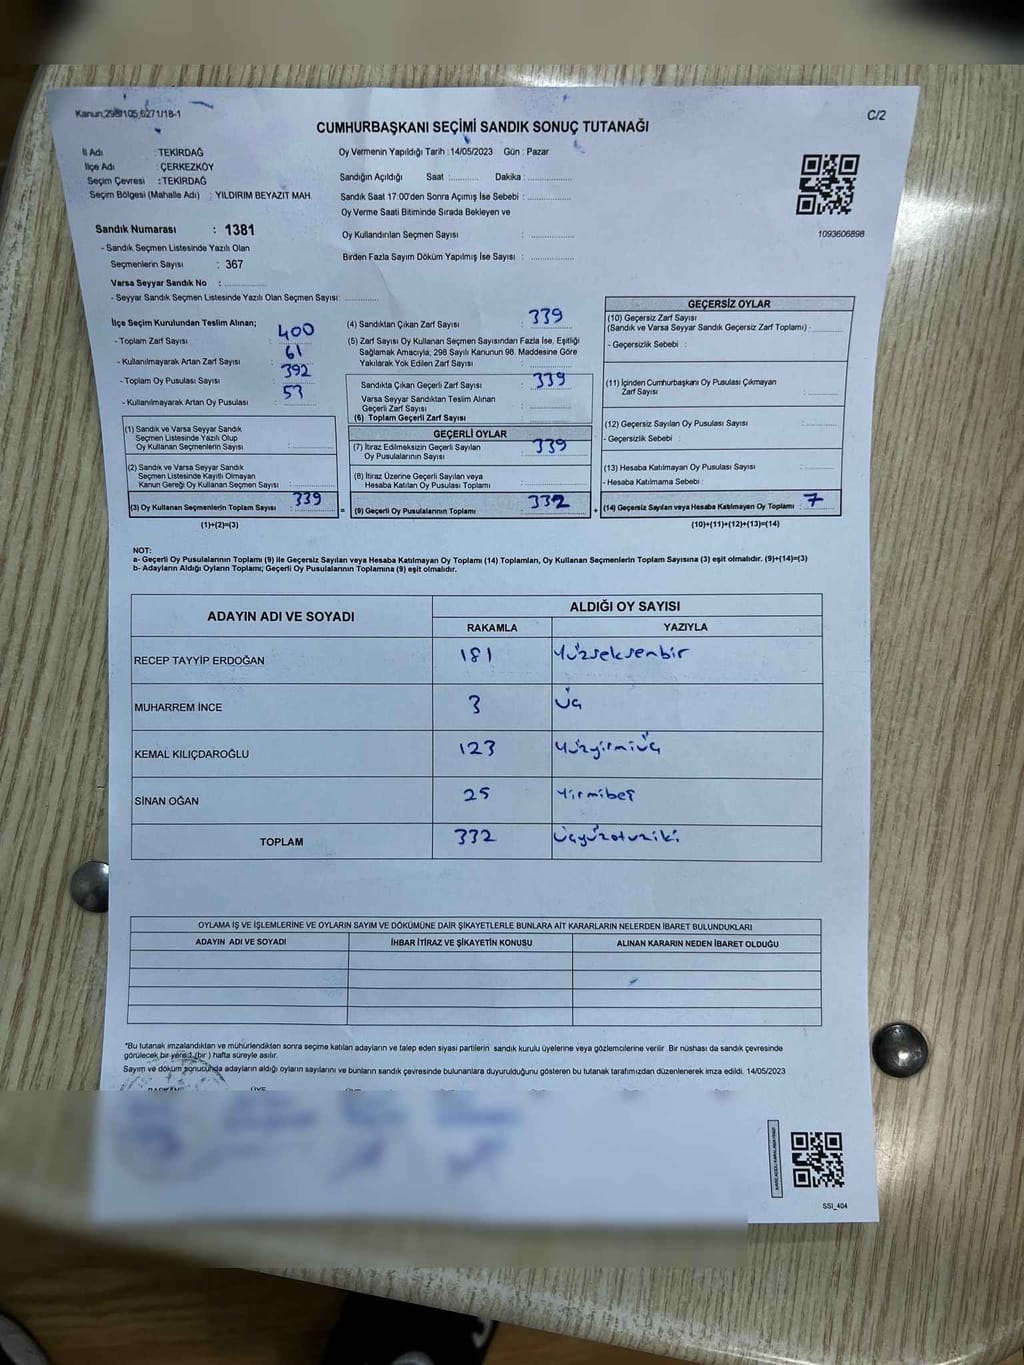 Kanun;298/105,6271/18-1
C/2
CUMHURBAŞKANI SEÇİMİ SANDIK SONUÇ TUTANAĞI
İl Adı : TEKİRDAĞ
İlçe Adı : ÇERKEZKÖY
Seçim Çevresi : TEKİRDAĞ
Seçim Bölgesi (Mahalle Adı) : YILDIRIM BEYAZIT MAH.
Sandık Numarası : 1381
- Sandık Seçmen Listesinde Yazılı Olan
Seçmenlerin Sayısı : 367
Varsa Seyyar Sandık No :
- Seyyar Sandık Seçmen Listesinde Yazılı Olan Seçmen Sayısı:
Oy Vermenin Yapıldığı Tarih : 14/05/2023 Gün : Pazar
Sandığın Açıldığı Saat : Dakika :
Sandık Saat 17.00'den Sonra Açımış İse Sebebi :
Oy Verme Saati Bitiminde Sırada Bekleyen ve
Oy Kullandırılan Seçmen Sayısı :
Birden Fazla Sayım Döküm Yapılmış İse Sayısı :
1093606898
İlçe Seçim Kurulundan Teslim Alınan;
- Toplam Zarf Sayısı : 400
- Kullanılmayarak Artan Zarf Sayısı : 61
- Toplam Oy Pusulası Sayısı : 392
- Kullanılmayarak Artan Oy Pusulası : 53
(1) Sandık ve Varsa Seyyar Sandık
Seçmen Listesinde Yazılı Olup
Oy Kullanan Seçmenlerin Sayısı :
(2) Sandık ve Varsa Seyyar Sandık
Seçmen Listesinde Kayıtlı Olmayan
Kanun Gereği Oy Kullanan Seçmen Sayısı :
(3) Oy Kullanan Seçmenlerin Toplam Sayısı : 339
(1)+(2)=(3)
=
(4) Sandıktan Çıkan Zarf Sayısı : 339
(5) Zarf Sayısı Oy Kullanan Seçmen Sayısından Fazla İse, Eşitliği
Sağlamak Amacıyla; 298 Sayılı Kanunun 98. Maddesine Göre
Yakılarak Yok Edilen Zarf Sayısı :
Sandıkta Çıkan Geçerli Zarf Sayısı : 339
Varsa Seyyar Sandıktan Teslim Alınan
Geçerli Zarf Sayısı :
(6) Toplam Geçerli Zarf Sayısı
GEÇERLİ OYLAR
(7) İtiraz Edilmeksizin Geçerli Sayılan
Oy Pusulalarının Sayısı : 339
(8) İtiraz Üzerine Geçerli Sayılan veya
Hesaba Katılan Oy Pusulası Toplamı :
(9) Geçerli Oy Pusulalarının Toplamı : 332
+
GEÇERSİZ OYLAR
(10) Geçersiz Zarf Sayısı
(Sandık ve Varsa Seyyar Sandık Geçersiz Zarf Toplamı) :
- Geçersizlik Sebebi :
(11) İçinden Cumhurbaşkanı Oy Pusulası Çıkmayan
Zarf Sayısı :
(12) Geçersiz Sayılan Oy Pusulası Sayısı :
- Geçersizlik Sebebi :
(13) Hesaba Katılmayan Oy Pusulası Sayısı :
- Hesaba Katılmama Sebebi :
(14) Geçersiz Sayılan veya Hesaba Katılmayan Oy Toplamı : 7
(10)+(11)+(12)+(13)=(14)
NOT:
a- Geçerli Oy Pusulalarının Toplamı (9) ile Geçersiz Sayılan veya Hesaba Katılmayan Oy Toplamı (14) Toplamları, Oy Kullanan Seçmenlerin Toplam Sayısına (3) eşit olmalıdır. (9)+(14)=(3)
b- Adayların Aldığı Oyların Toplamı; Geçerli Oy Pusulalarının Toplamına (9) eşit olmalıdır.
ADAYIN ADI VE SOYADI ALDIĞI OY SAYISI
RAKAMLA YAZIYLA
RECEP TAYYİP ERDOĞAN 181 Yüzseksenbir
MUHARREM İNCE 3 Üç
KEMAL KILIÇDAROĞLU 123 Yüzyirmiüç
SİNAN OĞAN 25 Yirmibeş
TOPLAM 332 Üçyüzotuziki
OYLAMA İŞ VE İŞLEMLERİNE VE OYLARIN SAYIM VE DÖKÜMÜNE DAİR ŞİKAYETLERLE BUNLARA AİT KARARLARIN NELERDEN İBARET BULUNDUKLARI
ADAYIN ADI VE SOYADI İHBAR İTİRAZ VE ŞİKAYETİN KONUSU ALINAN KARARIN NEDEN İBARET OLDUĞU
*Bu tutanak imzalandıktan ve mühürlendikten sonra seçime katılan adayların ve talep eden siyasi partilerin sandık kurulu üyelerine veya gözlemcilerine verilir. Bir nüshası da sandık çevresinde
görülecek bir yere 1 (bir) hafta süreyle asılır.
Sayım ve döküm sonucunda adayların aldığı oyların sayılarını ve bunların sandık çevresinde bulunanlara duyurulduğunu gösteren bu tutanak tarafımızdan düzenlenerek imza edildi. 14/05/2023
SSI_404